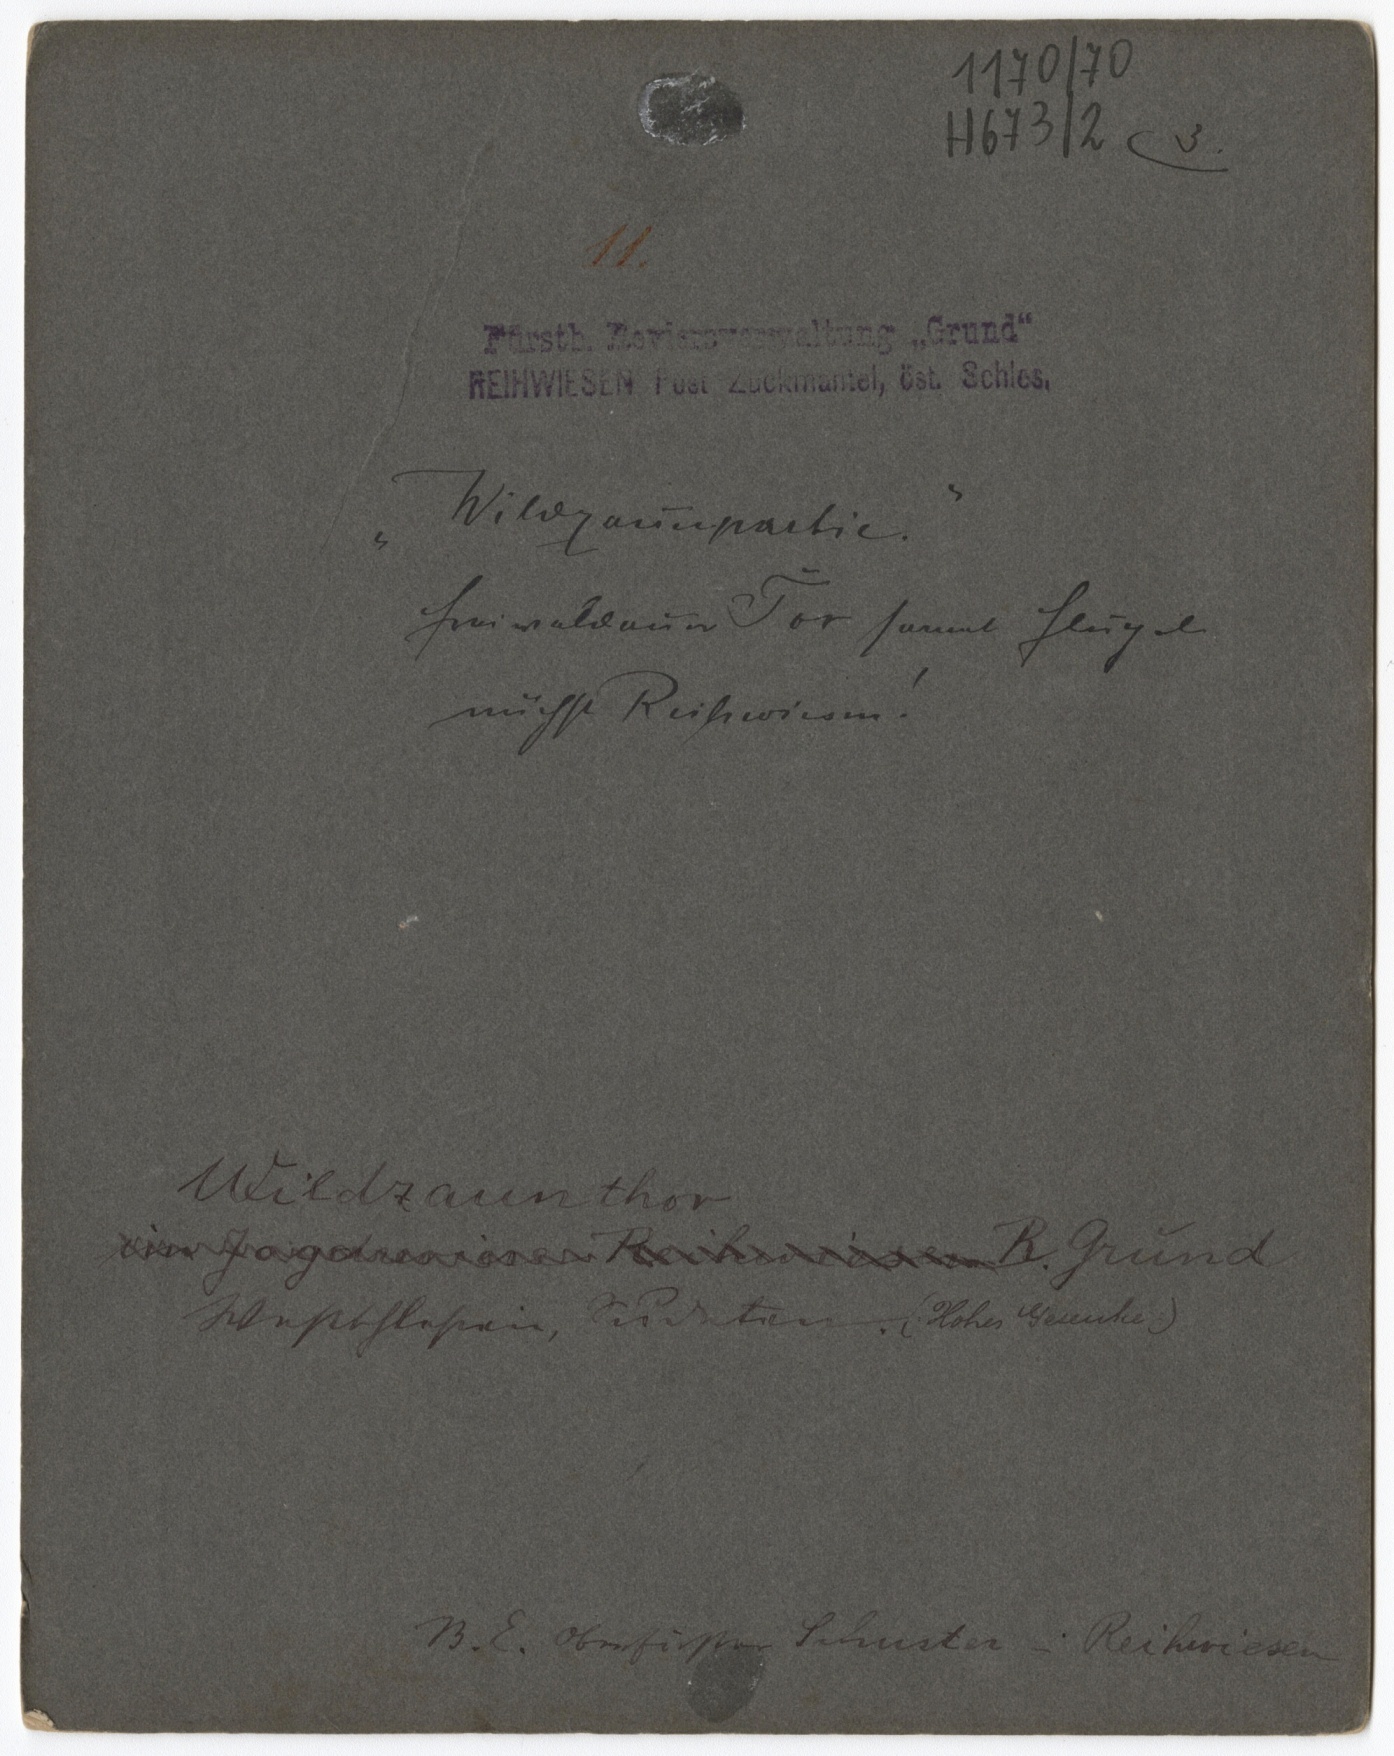 1170/70
H673/2 3.
11.
Fürstb. Revierverwaltung „Grund“
REIHWIESEN Post Zuckmantel, öst. Schles.
„Wildzaunpartie.“
Freiwaldauer Tor samt Flügel
nächst Reihwiesen!
Wildzaunthor
im Jagdrevier Reihwiesen R. Grund
Westschlesien, Sudeten. (Hohes Gesenke)
B. E. Oberförster Schuster - Reihwiesen